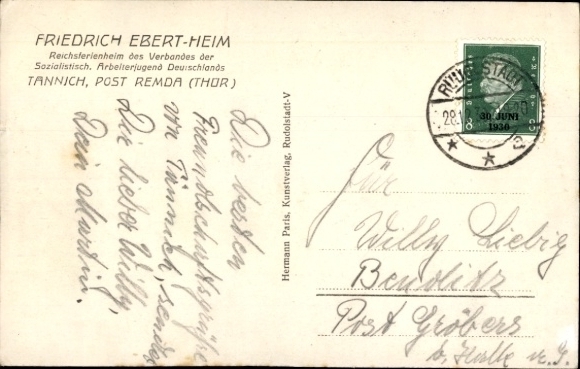 FRIEDRICH EBERT-HEIM
Reichsferienheim des Verbandes der
Sozialistisch. Arbeiterjugend Deutschlands
TANNICH, POST REMDA (THÜR)
Die besten
Freundschaftsgrüße
von Tännich, sendet
Die lieber Willy,
Dein Martin.
Hermann Paris, Kunstverlag, Rudolstadt-V
RUDOLSTADT
28.
30. JUNI
1930
8
8
Für
Willy Liebig
Benndlitz
Post Gröbers
b, Halle a. S.